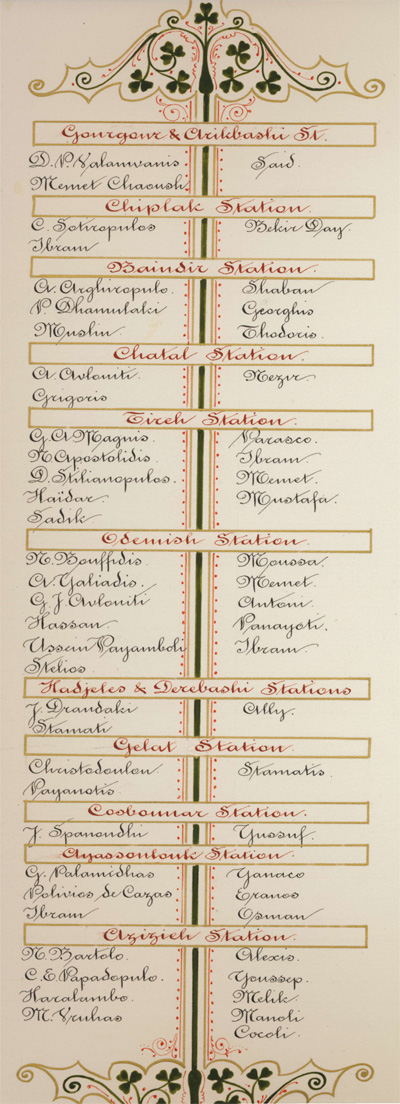 Gourgour & Arikbashi St.
D. P. Valamvanis. Said.
Memet Chaoush.
Chiplak Station.
C. Sotiropulos Bekir Day.
Ibram
Baindir Station.
A. Arghiropulo. Shaban
P. Dhamulaki Georghis
Muslin. Thodoris.
Chatal Station.
A. Avloniti. Nezir.
Grigoris
Tireh Station.
G. A. Magnis. Parasco.
N. Apostolidis. Ibram.
D. Stilianopulos. Memet.
Haïdar. Mustafa.
Sadik
Odemish Station.
N. Bouffidis. Moussa.
A. Yaliadis. Memet.
G. J. Avloniti Antoni
Hassan. Panayoti.
Ussein Payamboli Ibram.
Stelios.
Hadjeles & Derebashi Stations
J. Drandaki Ally.
Stamati
Gelat Station.
Christodoulou. Stamatis.
Payanotis.
Cosbounar Station.
J. Spanoudhi Yussuf.
Ayassoulouk Station.
G. Palamidhas Yanaco
Polivios de Cazas Eranos
Ibram Osman
Azizieh Station.
N. Bartolo. Alexis.
C. E. Papadopulo. Youssep.
Haralambo. Melik.
M. Vruhas Manoli
Cocoli.